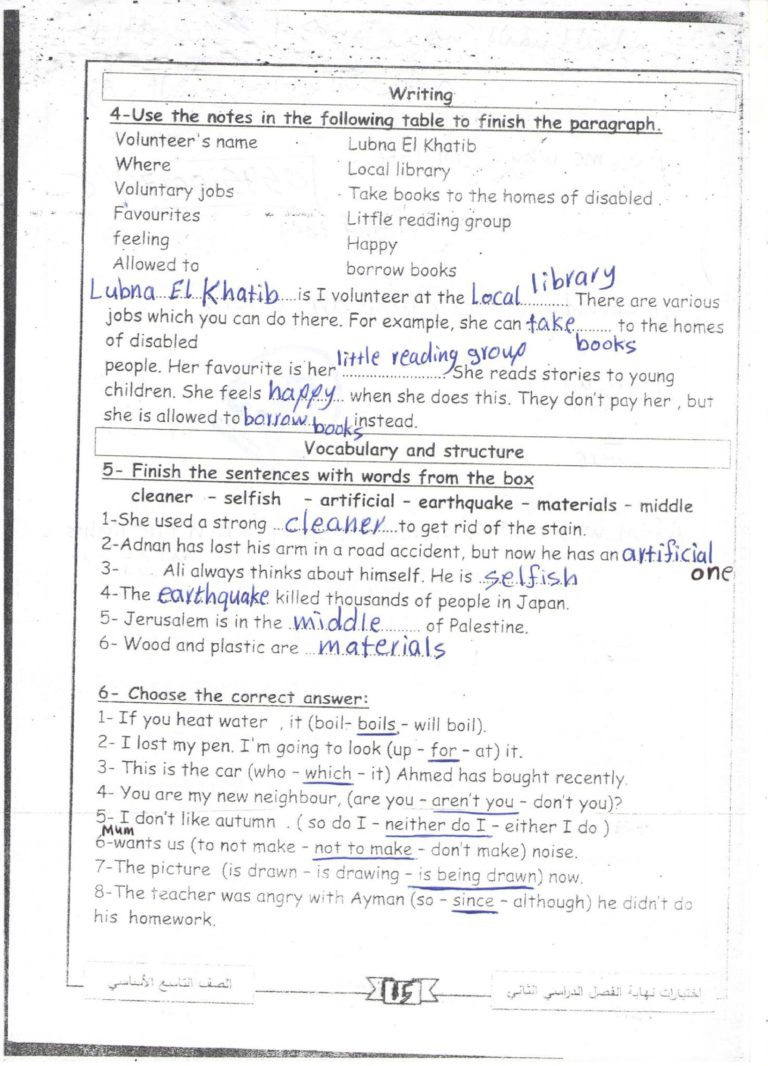 Writing
4-Use the notes in the following table to finish the paragraph.
Volunteer's name Lubna El Khatib
Where Local library
Voluntary jobs Take books to the homes of disabled .
Favourites Little reading group
feeling Happy
Allowed to borrow books
Lubna El Khatib is I volunteer at the Local library There are various
jobs which you can do there. For example, she can take books to the homes
of disabled
people. Her favourite is her little reading group She reads stories to young
children. She feels happy when she does this. They don't pay her , but
she is allowed to borrow books instead.
Vocabulary and structure
5- Finish the sentences with words from the box
cleaner - selfish - artificial - earthquake - materials - middle
1-She used a strong cleaner to get rid of the stain.
2-Adnan has lost his arm in a road accident, but now he has an artificial one
3- Ali always thinks about himself. He is selfish
4-The earthquake killed thousands of people in Japan.
5- Jerusalem is in the middle of Palestine.
6- Wood and plastic are materials
6- Choose the correct answer:
1- If you heat water , it (boil- boils - will boil).
2- I lost my pen. I'm going to look (up - for - at) it.
3- This is the car (who - which - it) Ahmed has bought recently.
4- You are my new neighbour, (are you - aren't you - don't you)?
5- I don't like autumn . ( so do I - neither do I - either I do )
6- Mum wants us (to not make - not to make - don't make) noise.
7-The picture (is drawn - is drawing - is being drawn) now.
8-The teacher was angry with Ayman (so - since - although) he didn't do
his homework.
الصف التاسع الأساسي 115 اختبارات نهاية الفصل الدراسي الثاني